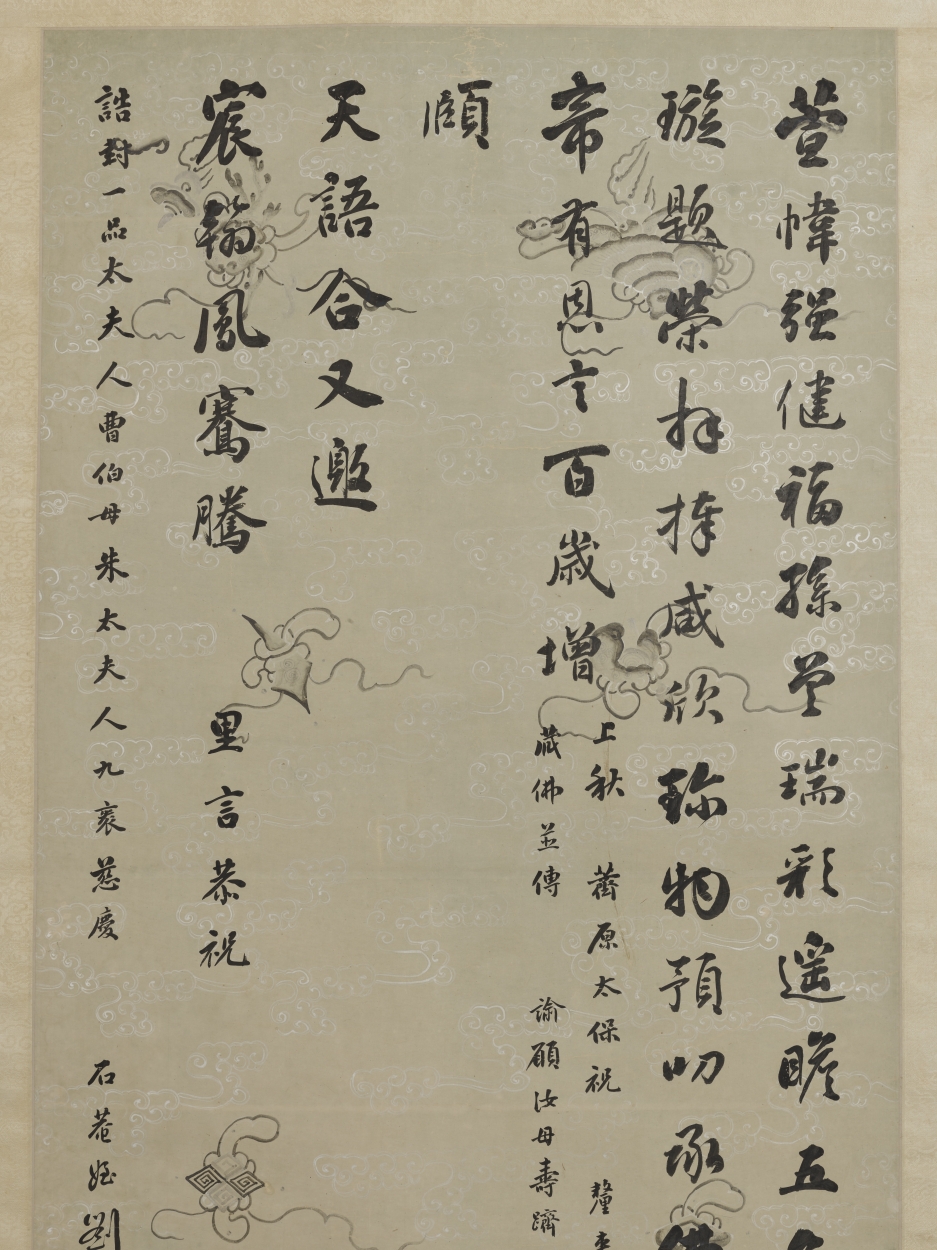 萱幃强健福孫曾瑞彩遥瞻五
璇題榮拜捧咸欣珎物預叨承
帝有恩言百歲增
上秋 薦原太保祝 釐
藏佛並傳 諭願汝母壽躋
頤
天語合又邀
宸翰鳳騫騰
里言恭祝
誥封一品太夫人曹伯母朱太夫人九袠慈慶 石菴姪劉